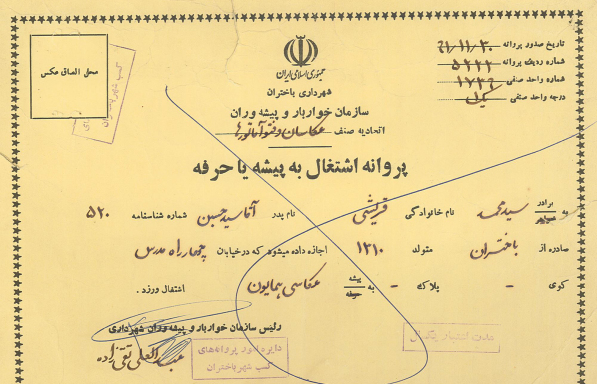 جمهوری اسلامی ایران
شهرداری باختران
سازمان خواربار و پیشه وران
اتحادیه صنف عکاسان و فتوآماتورها
تاریخ صدور پروانه ۶۱/۱۱/۳۰
شماره ردیف پروانه ۵۲۲۲
شماره واحد صنفی ۱۷۳۶
درجه واحد صنفی یک
محل الصاق عکس
پروانه اشتغال به پیشه یا حرفه
به برادر خواهر سیدمحمد نام خانوادگی قریشی نام پدر آقاسیدحسین شماره شناسنامه ۵۲۰
صادره از باختران متولد ۱۳۱۰ اجازه داده میشود که در خیابان چهارراه مدرس
کوی - پلاک - به پیشه حرفه عکاسی همایون اشتغال ورزد .
رئیس سازمان خواربار و پیشه وران شهرداری
تقی زاده
دایره امور پروانه‌های
کسب شهر باختران
مدت اعتبار یکسال